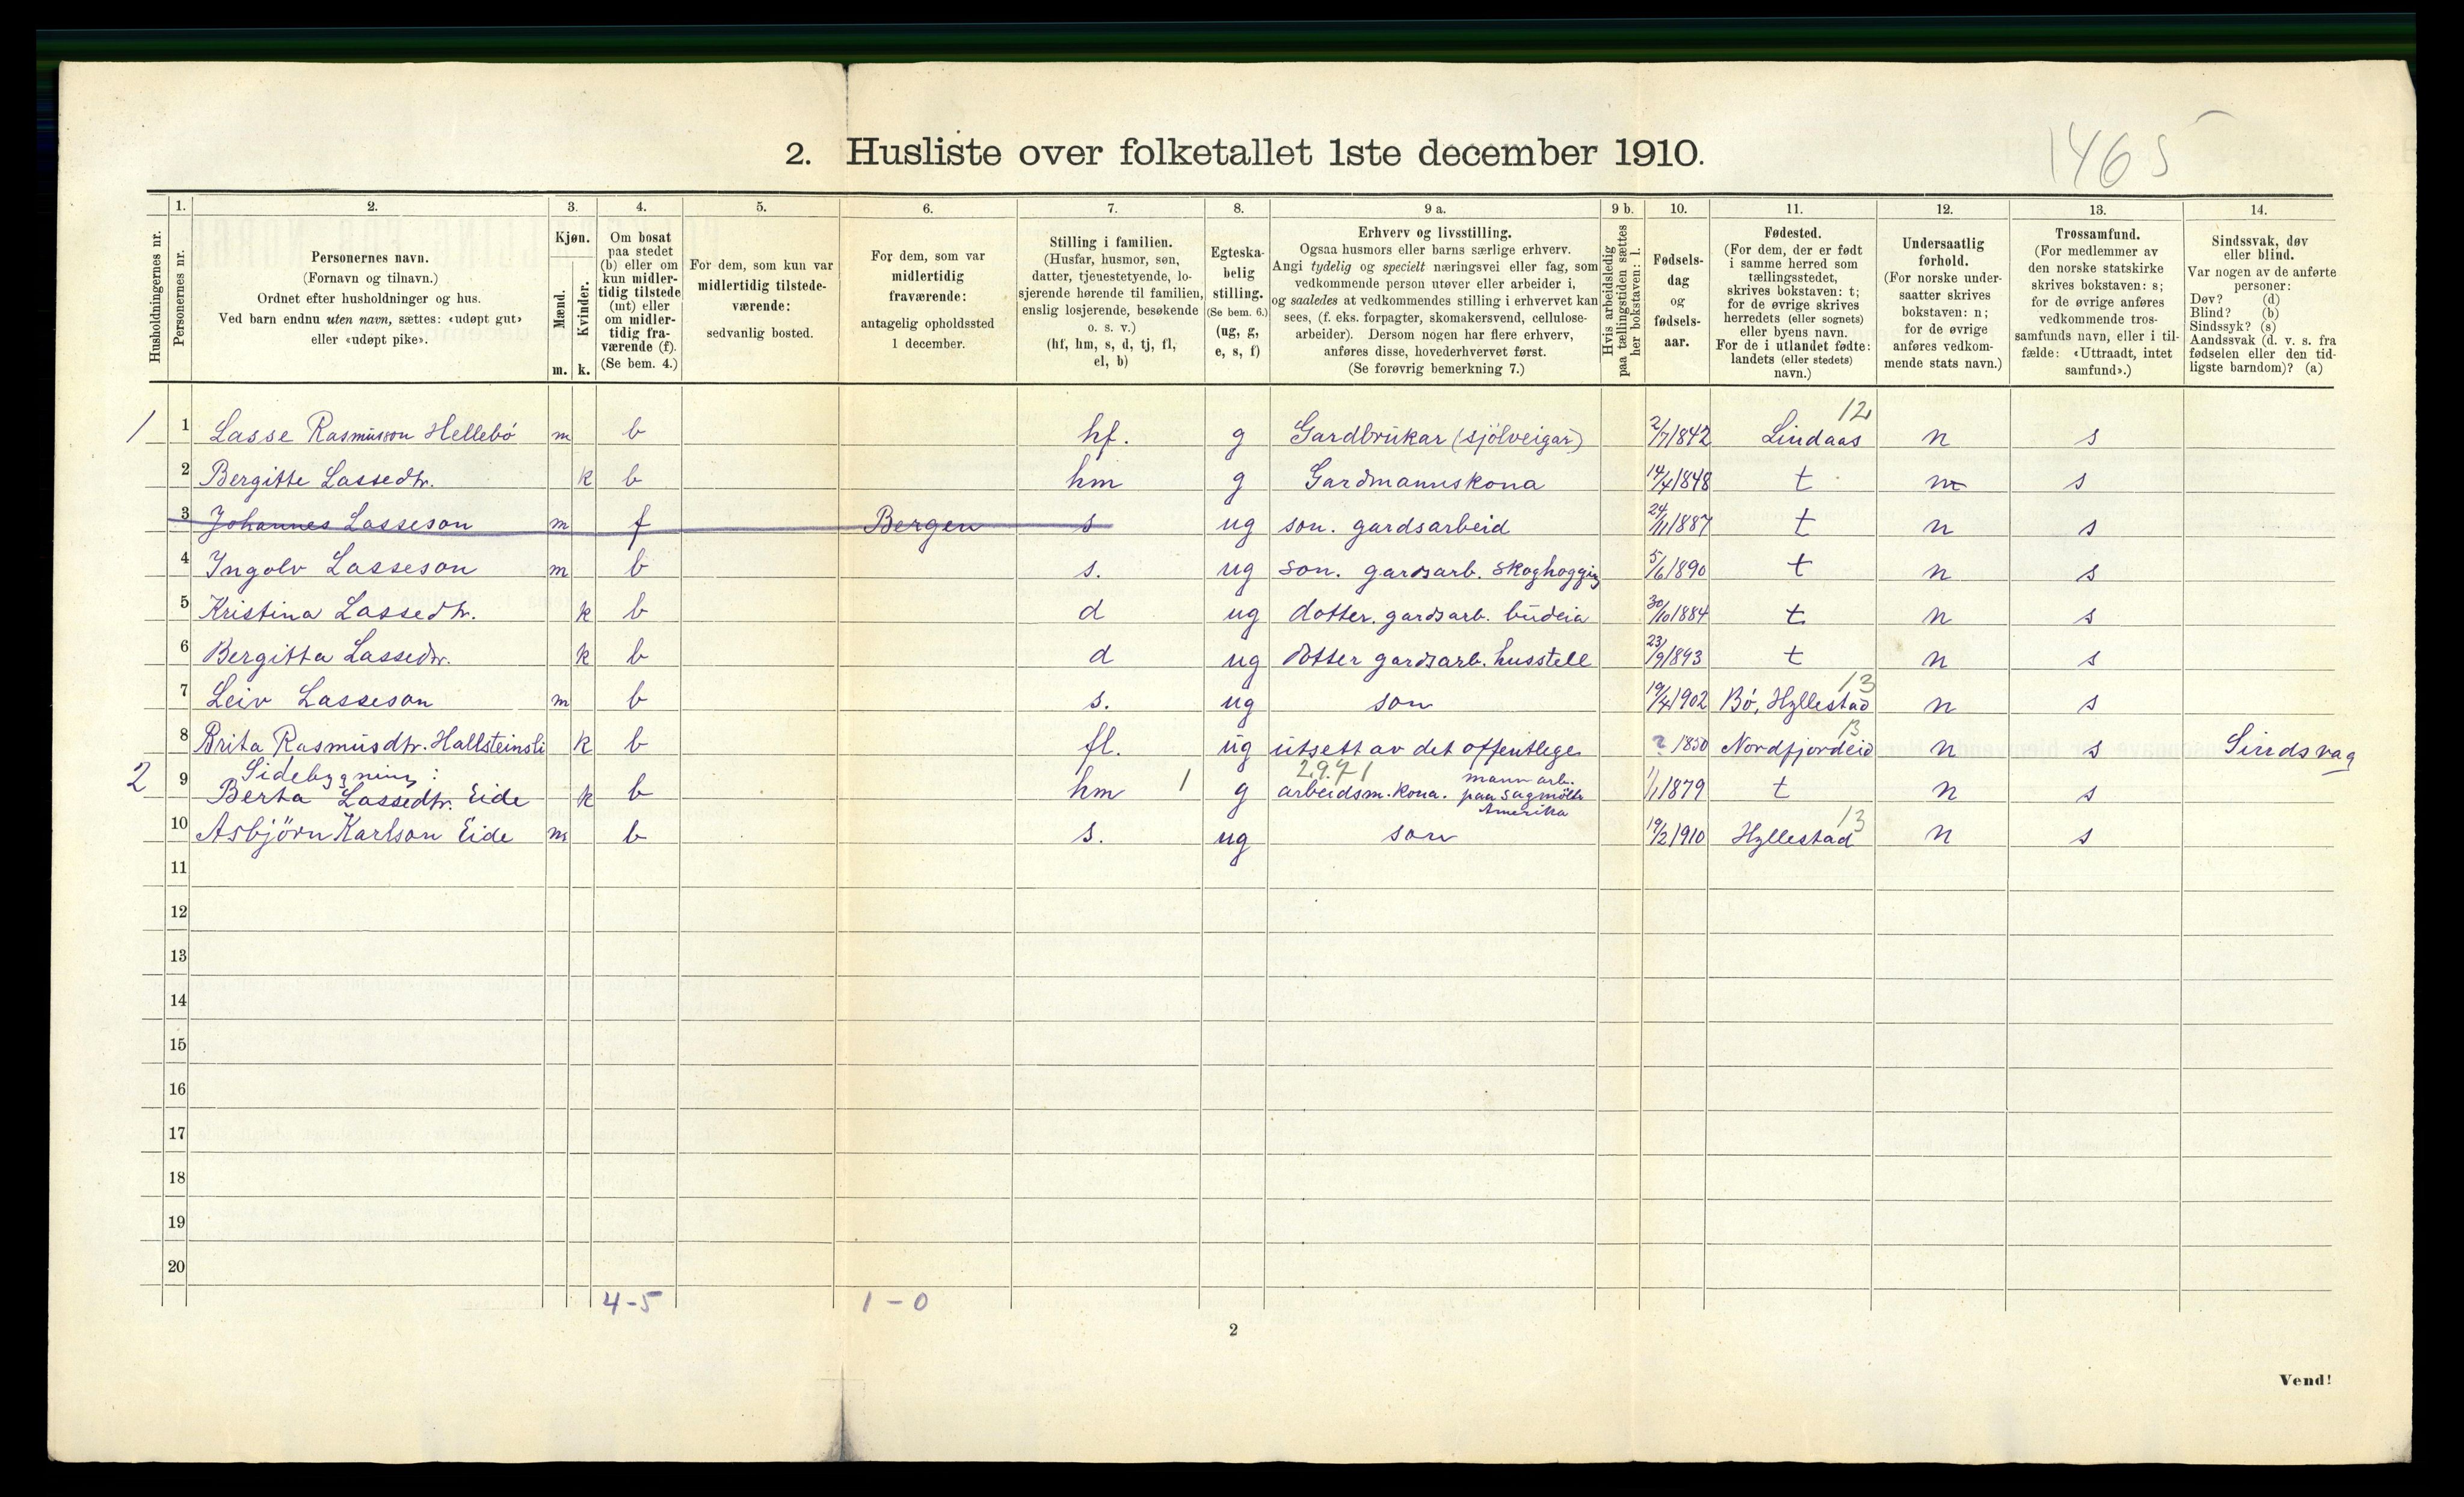 1465
2. Husliste over folketallet 1ste december 1910.
Husholdningernes nr.
1. Personernes nr.
2. Personernes navn.
(Fornavn og tilnavn.)
Ordnet efter husholdninger og hus.
Ved barn endnu uten navn, sættes: «udøpt gut»
eller «udøpt pike».
3. Kjøn.
Mænd. m.
Kvinder. k.
4. Om bosat
paa stedet
(b) eller om
kun midler-
tidig tilstede
(mt) eller
om midler-
tidig fra-
værende (f).
(Se bem. 4.)
5. For dem, som kun var
midlertidig tilstede-
værende:
sedvanlig bosted.
6. For dem, som var
midlertidig
fraværende:
antagelig opholdssted
1 december.
7. Stilling i familien.
(Husfar, husmor, søn,
datter, tjenestetyende, lo-
sjerende hørende til familien,
enslig losjerende, besøkende
o. s. v.)
(hf, hm, s, d, tj, fl,
el, b)
8. Egteska-
belig
stilling.
(Se bem. 6.)
(ug, g,
e, s, f)
9 a. Erhverv og livsstilling.
Ogsaa husmors eller barns særlige erhverv.
Angi tydelig og specielt næringsvei eller fag, som
vedkommende person utøver eller arbeider i,
og saaledes at vedkommendes stilling i erhvervet kan
sees, (f. eks. forpagter, skomakersvend, cellulose-
arbeider). Dersom nogen har flere erhverv,
anføres disse, hovederhvervet først.
(Se forøvrig bemerkning 7.)
9 b. Hvis arbeidsledig
paa tællingstiden sættes
her bokstaven: l.
10. Fødsels-
dag
og
fødsels-
aar.
11. Fødested.
(For dem, der er født
i samme herred som
tællingsstedet,
skrives bokstaven: t;
for de øvrige skrives
herredets (eller sognets)
eller byens navn.
For de i utlandet fødte:
landets (eller stedets)
navn.)
12. Undersaatlig
forhold.
(For norske under-
saatter skrives
bokstaven: n;
for de øvrige
anføres vedkom-
mende stats navn.)
13. Trossamfund.
(For medlemmer av
den norske statskirke
skrives bokstaven: s;
for de øvrige anføres
vedkommende tros-
samfunds navn, eller i til-
fælde: «Uttraadt, intet
samfund».)
14. Sindssvak, døv
eller blind.
Var nogen av de anførte
personer:
Døv? (d)
Blind? (b)
Sindssyk? (s)
Aandssvak (d. v. s. fra
fødselen eller den tid-
ligste barndom)? (a)
12
1 1 Lasse Rasmusson Hellebö m b hf. g Gardbrukar (sjölveigar) 2/7 1842 Lindaas n s
2 Bergitte Lassedtr. k b hm g Gardmannskona 14/4 1848 t n s
3 Johannes Lasseson m f Bergen s ug son. gardsarbeid 24/11 1887 t n s
4 Ingolv Lasseson m b s. ug son. gardsarb. skoghoggig 5/6 1890 t n s
5 Kristina Lassedtr. k b d ug dotter. gardsarb. budeia 30/10 1884 t n s
6 Bergitta Lassedtr. k b d ug dotter gardsarb. husstell 23/9 1893 t n s
13
7 Leiv Lasseson m b s. ug son 19/4 1902 Bö, Hyllestad n s
13
8 Brita Rasmusdtr. Hallsteinsli k b fl. ug utsett av det offentlege ? 1850 Nordfjordeid n s Sindsvag
Sidebygning: 2971 mann arb.
2 9 Berta Lassedtr. Eide k b hm 1 g arbeidsm. kona. paa sagmölle 1/1 1879 t n s
Amerika 13
10 Asbjörn Karlson Eide m b s. ug son 19/2 1910 Hyllestad n s
11
12
13
14
15
16
17
18
19
20
4-5 1-0
2
Vend!